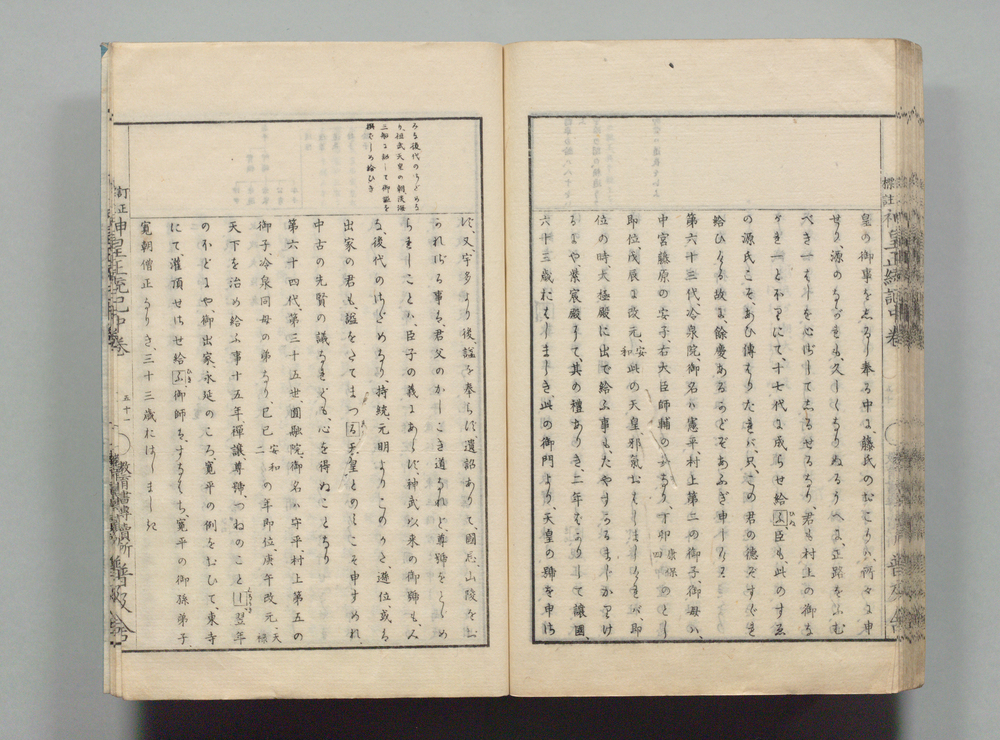 皇の御事を志るし奉る中に、藤氏のおこりハ所々に申
せり、源のながれも、久しくなりぬるうへに、正路をふむ
べき一はしを心ざして志るせるなり、君も村上の御な
がき一とほりにて、十七代に成らせ給ふ、臣も、此のすゑ
の源氏こそ、あひ傳はりたれバ、只、この君の德すぐれ
給ひける故に、餘慶あるかとぞあふぎ申しける
第六十三代、冷泉院、御名ハ憲平、村上第二の御子、御母ハ、
中宮藤原の安子、右大臣師輔の女なり、丁卯 康保四 のとし
即位、戊辰に改元、安和 此の天皇、邪氣おはしましければ、即
位の時、大極殿に出で給ふ事も、たやすかるまじかりけ
るにや、紫宸殿にて、其の禮ありき、二年ばかりして讓國、
六十三歲おはしましき、此の御門より、天皇の號を申さ
標註 神皇正統記中卷
みる後代の
持武天皇の朝
三船に
撰ばしめ給ひき
ず、又、宇多より後、諡を奉らず、遺詔ありて、國忌、山陵をお
かれざる事も、君父のかしこき道なれど、尊號をとゞめ
らるゝことハ、臣子の義にあらず、神武以來の御號も、
皆、後代のさだめなり、持統、元明よりこのかた、遜位或ハ
出家の君も、諡をたてまつる、天皇とのみこそ申すめれ、
中古の先賢の議なれども、心を得ぬことなり
第六十四代、第三十五世、圓融院、御名ハ守平、村上第五の
御子、冷泉同母の弟なり、己巳 安和二 の年即位、庚午改元、天祿
天下を治め給ふ事十五年、禪讓、尊號つねのことし、翌年
のほどにや、御出家、永延のころ、寬平の例をおひて、東寺
にて、灌頂せさせ給ふ、御師ハ、すなはち、寬平の御孫弟子、
寬朝僧正なりき、三十三歲おはしましき
訂正 神皇正統記中卷
五十一
普及舍